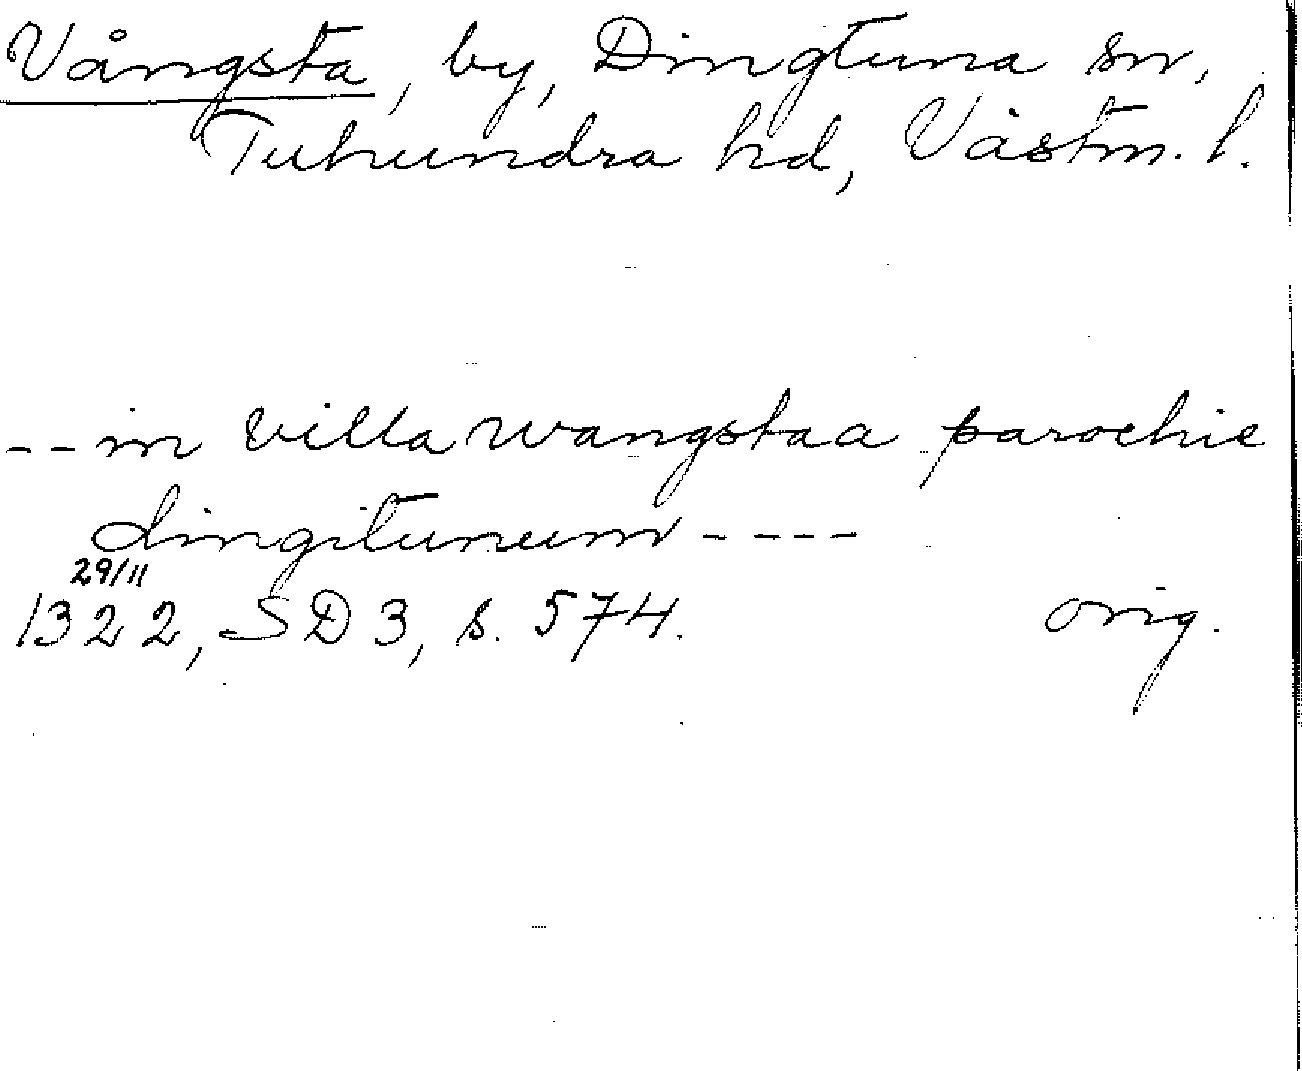 Vångsta, by, Dingtuna sn,
Tuhundra hd, Västm. l.
-- in villa wangstaa parochie
dingitunum ----
29/11
1322, SD 3, s. 574. orig.